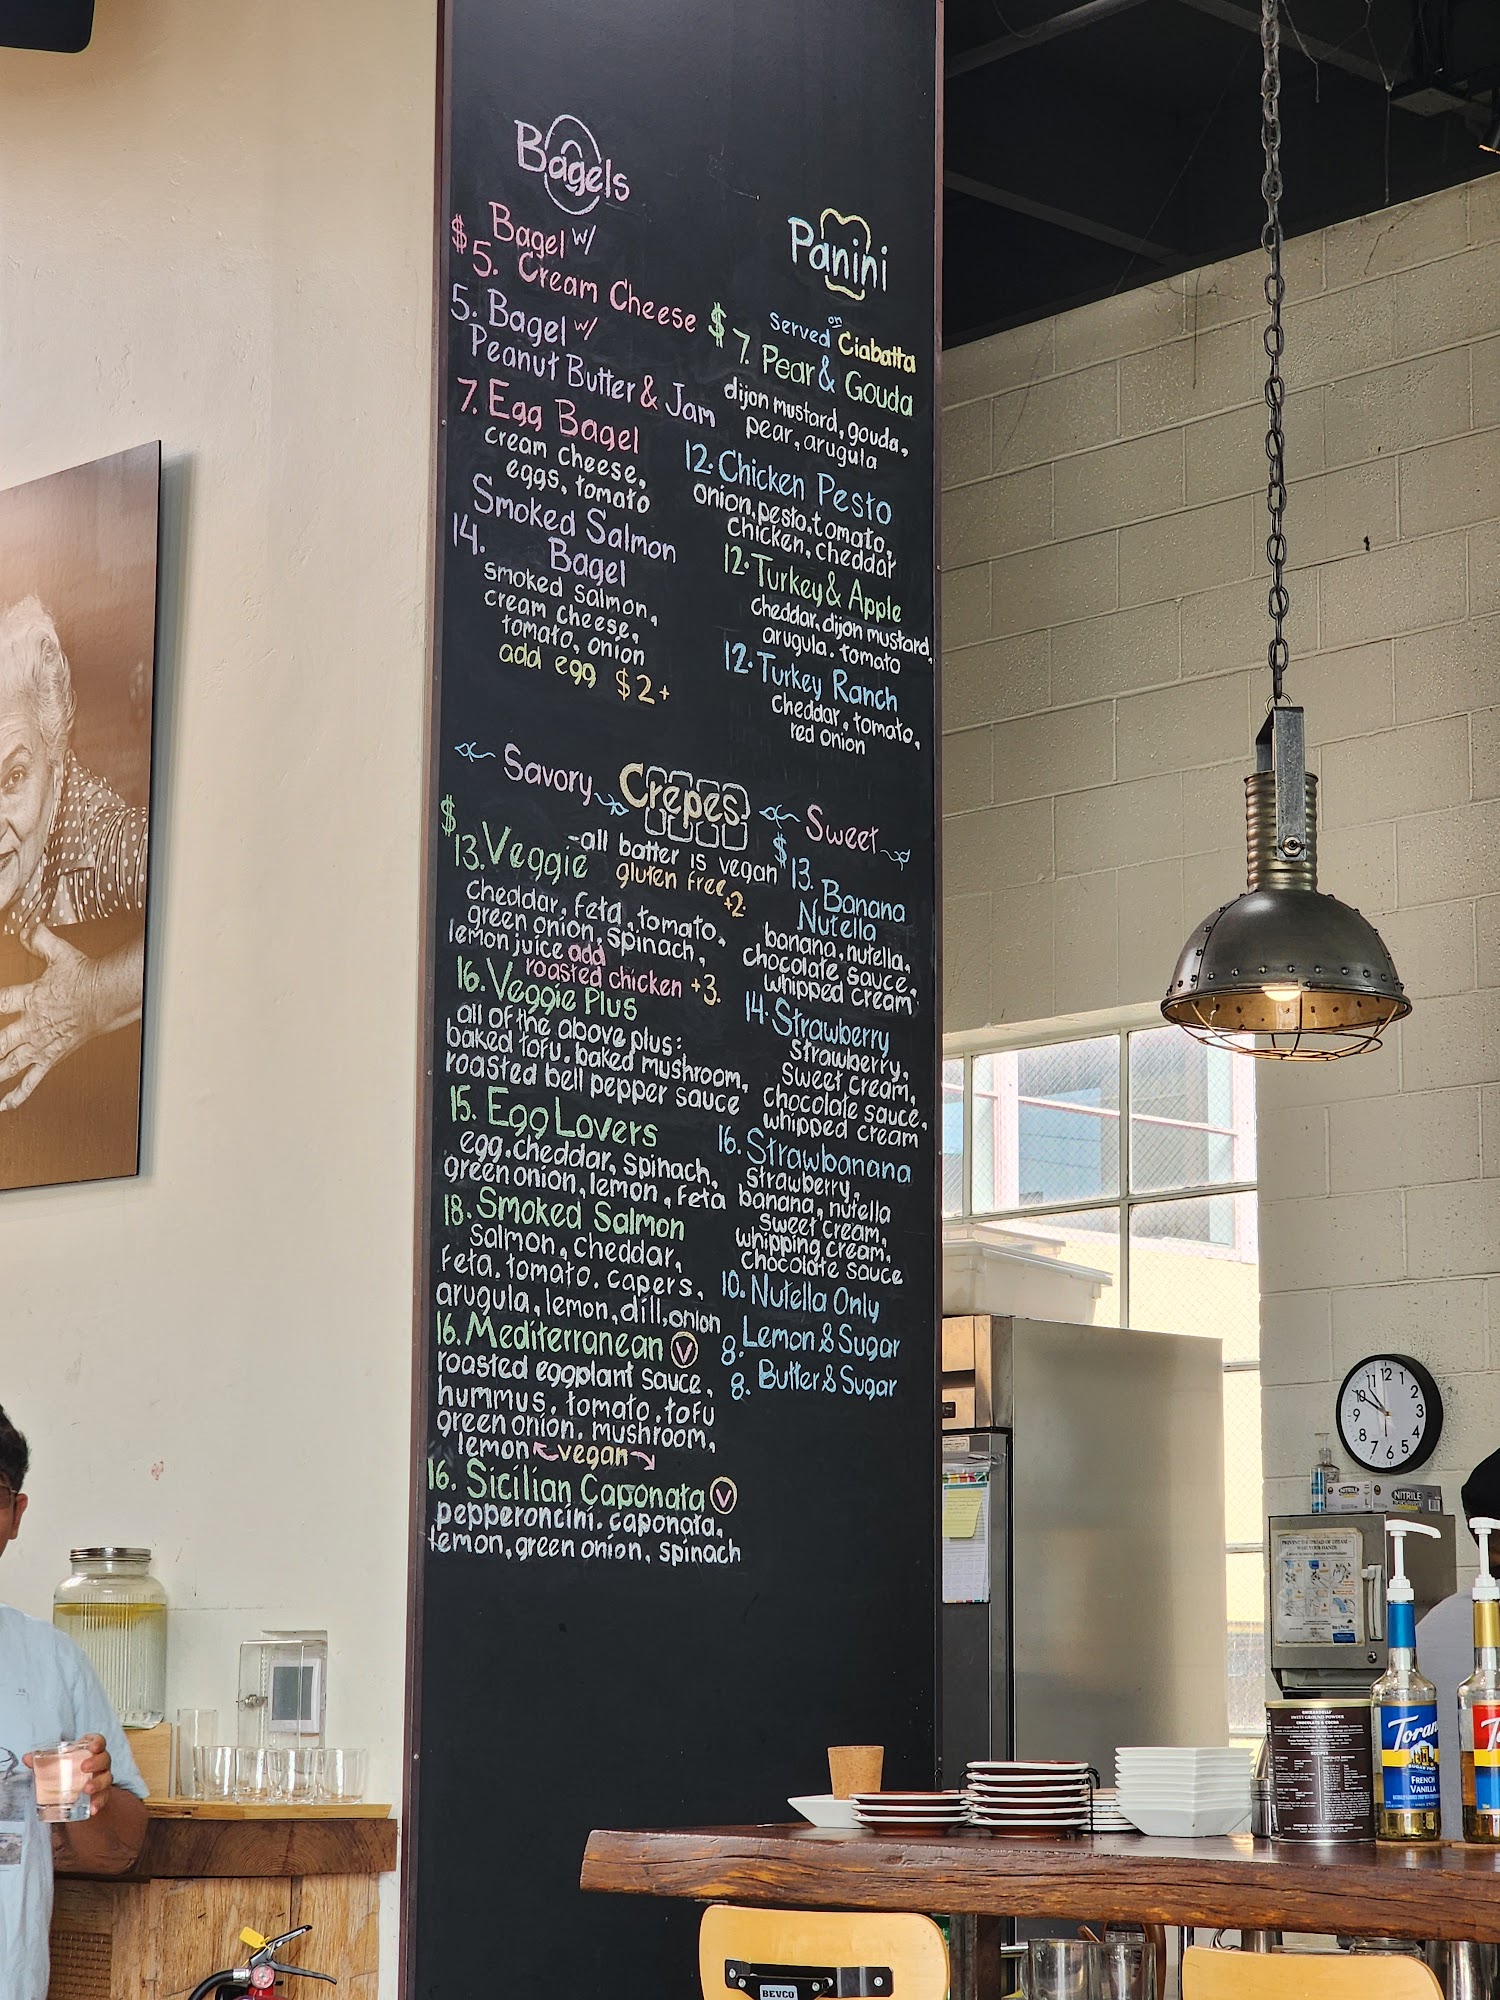 Bagels
Bagel w/
$5. Cream Cheese
5. Bagel w/
Peanut Butter & Jam
7. Egg Bagel
cream cheese,
eggs, tomato
Smoked Salmon
14. Bagel
smoked salmon,
cream cheese,
tomato, onion
add egg $2+
Panini
served on Ciabatta
$7. Pear & Gouda
dijon mustard, gouda,
pear, arugula
12. Chicken Pesto
onion, pesto, tomato,
chicken, cheddar
12. Turkey & Apple
cheddar, dijon mustard,
arugula. tomato
12. Turkey Ranch
Cheddar, tomato,
red onion
Savory Crepes Sweet
-all batter is vegan
gluten free +2
$13. Veggie
cheddar, feta, tomato,
green onion, spinach,
lemon juice add
roasted chicken +3.
16. Veggie Plus
all of the above plus:
baked tofu, baked mushroom,
roasted bell pepper sauce
15. Egg Lovers
egg, cheddar, spinach,
green onion, lemon, feta
18. Smoked Salmon
salmon, cheddar,
feta, tomato, capers,
arugula, lemon, dill, onion
16. Mediterranean V
roasted eggplant sauce,
hummus, tomato, tofu
green onion, mushroom,
lemon vegan
16. Sicilian Caponata V
pepperoncini, caponata,
lemon, green onion, spinach
$13. Banana
Nutella
banana, nutella,
chocolate sauce,
whipped cream
14. Strawberry
Strawberry,
sweet cream,
chocolate sauce,
whipped cream
16. Strawbanana
Strawberry,
banana, nutella
sweet cream,
whipping cream,
chocolate sauce
10. Nutella Only
8. Lemon & Sugar
8. Butter & Sugar
12
1
2
3
4
5
6
7
8
9
10
11
NITRILE
NITRILE
Torani
FRENCH
VANILLA
RECIPES
BEVCO